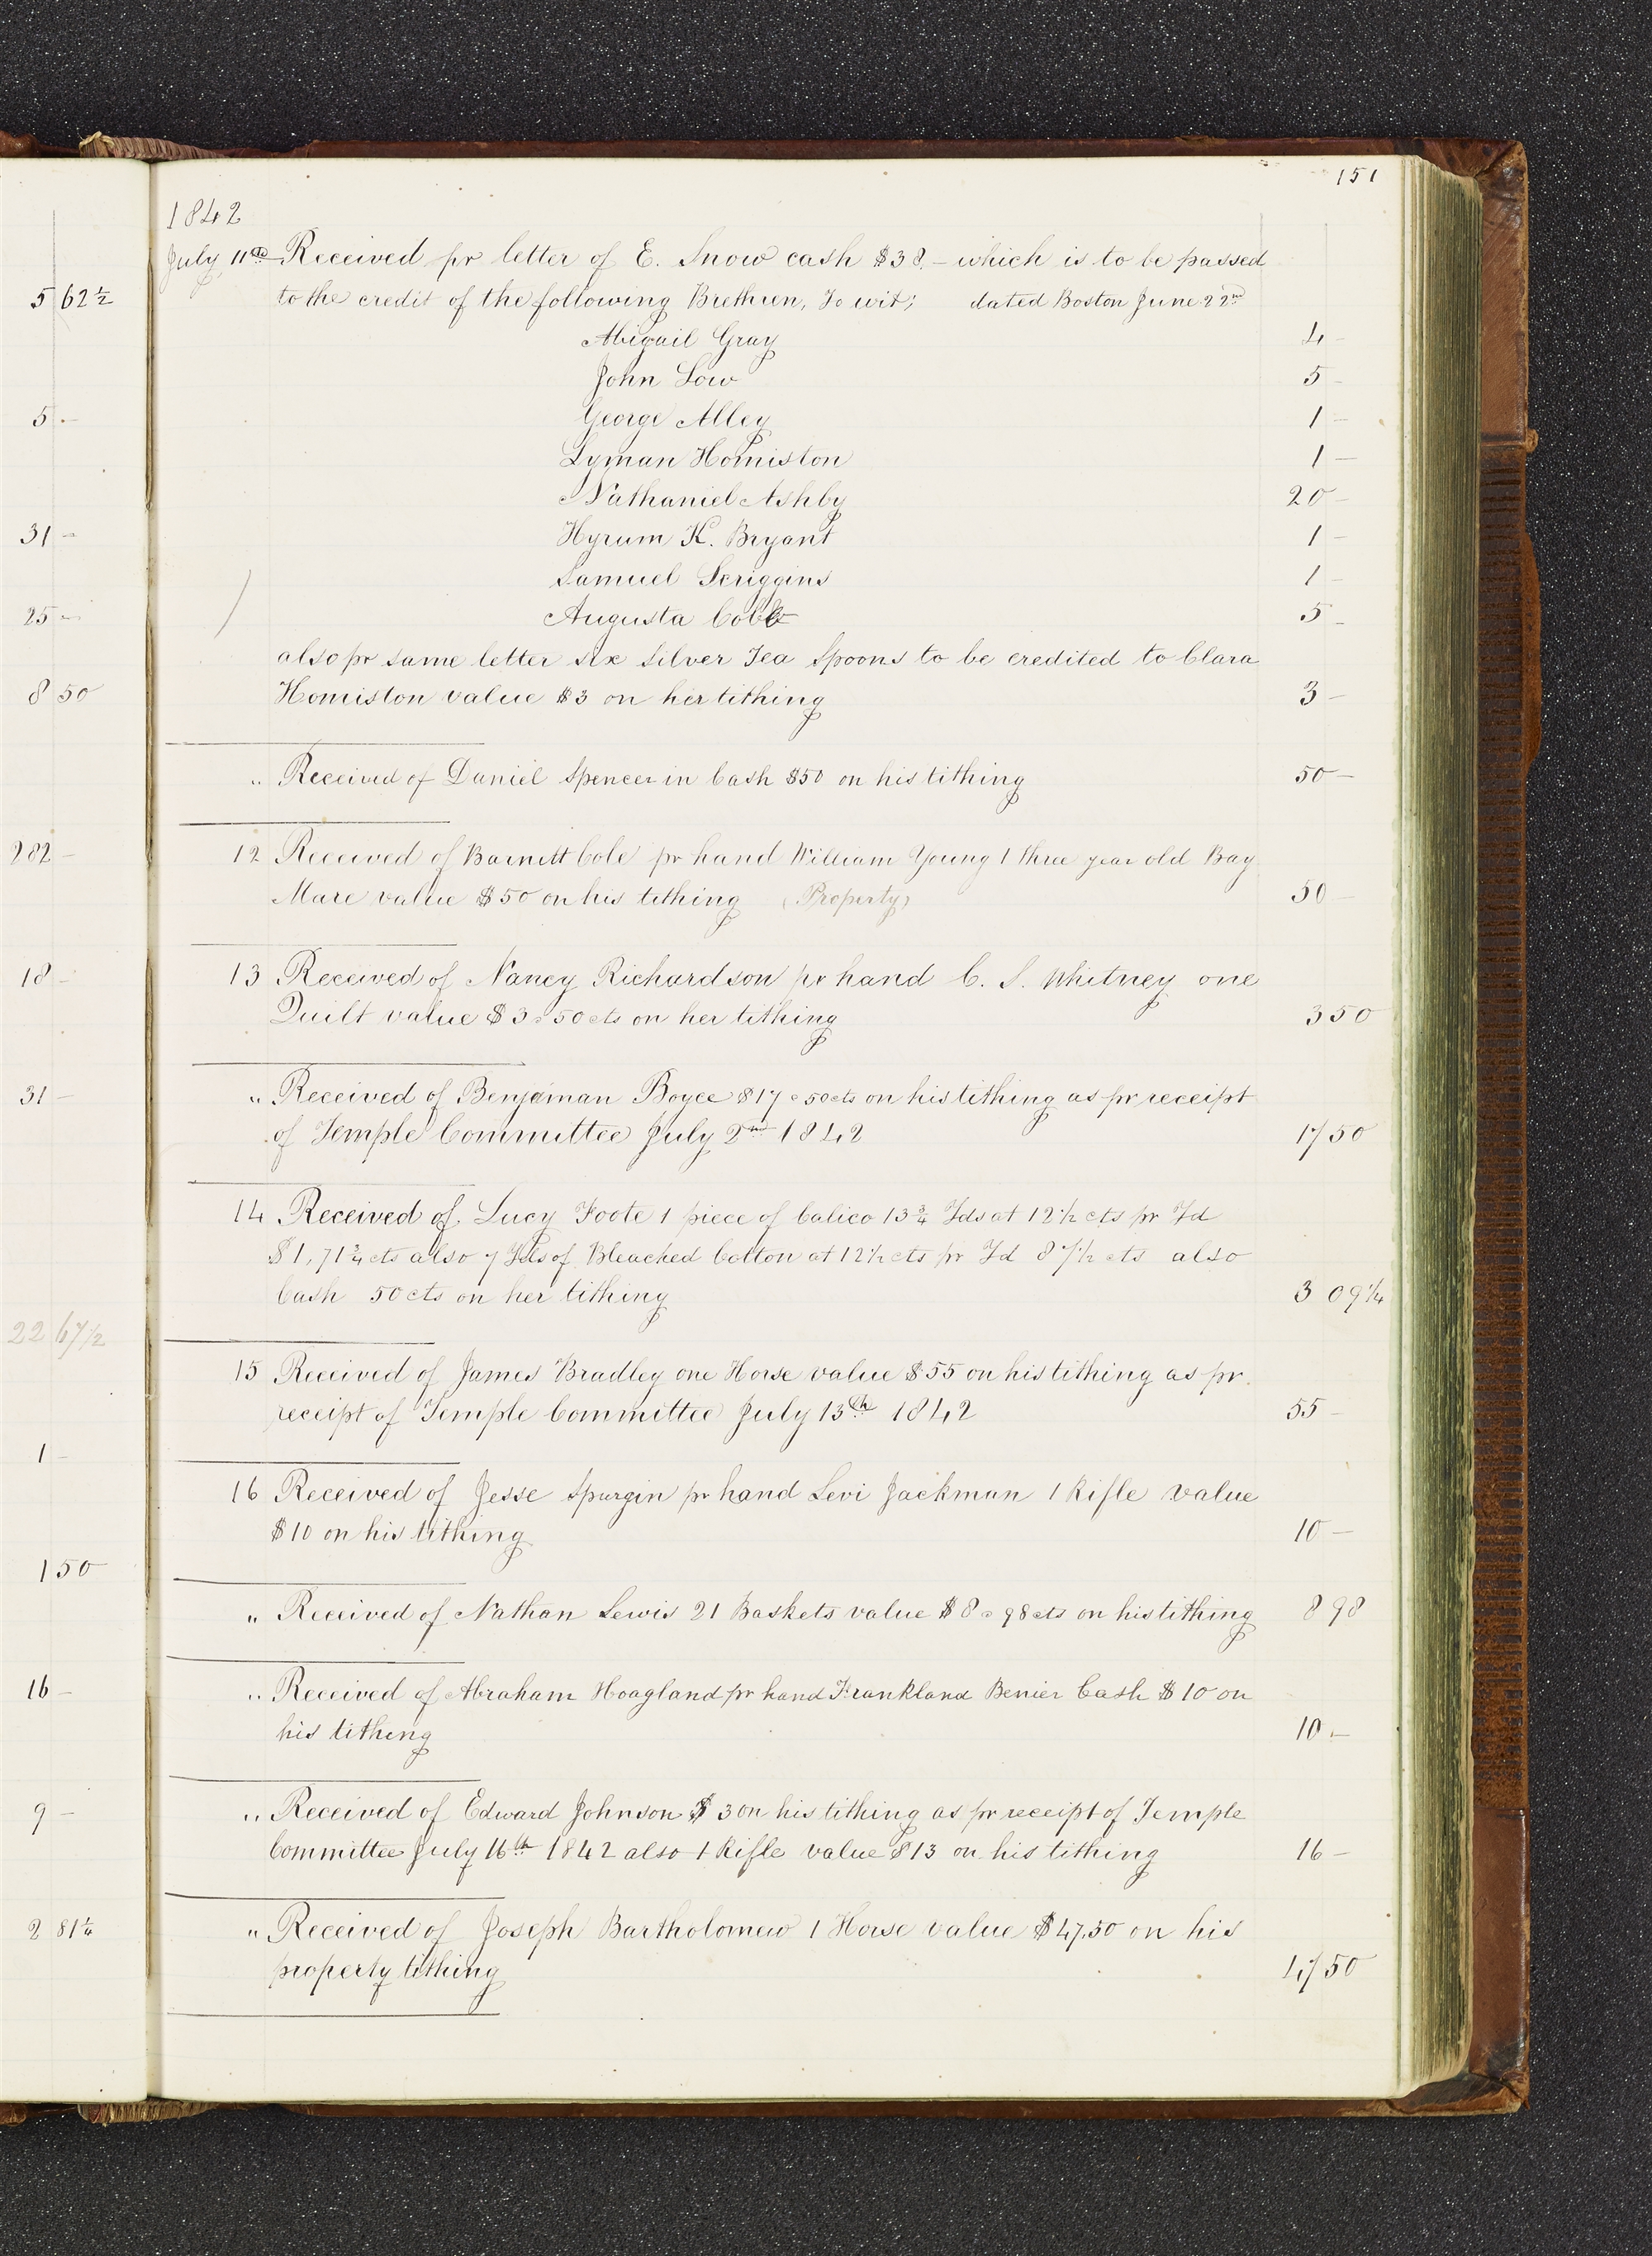 151
1842
July 11th Received pr letter of E. Snow cash $38.– which is to be passed
to the credit of the following Brethren, To wit; dated Boston June 22nd
Abigail Gray 4 –
John Low 5 –
George Alley 1 –
Lyman Homiston 1 –
Nathaniel Ashby 20 –
Hyrum K. Bryant 1 –
Samuel Scriggins 1 –
Augusta Cobb 5 –
also pr same letter six Silver Tea Spoons to be credited to Clara
Homiston value $3 on her tithing 3 –
" Received of Daniel Spencer in Cash $50 on his tithing 50 –
12 Received of Barnett Cole pr hand William Young 1 three year old Bay
Mare value $50 on his tithing (Property) 50 –
13 Received of Nancy Richardson pr hand C. S. Whitney one
Quilt value $3 = 50 cts on her tithing 3 50
" Received of Benjaman Boyce $17 = 50 cts on his tithing as pr receipt
of Temple Committee July 2nd 1842 17 50
14 Received of Lucy Foote 1 piece of Calico 13 3/4 Yds at 12 1/2 cts pr Yd
$1,71 3/4 cts also 7 Yds of Bleached Cotton at 12 1/2 cts pr Yd 87 1/2 cts also
Cash 50 cts on her tithing 3 09 1/4
15 Received of James Bradley one Horse value $55 on his tithing as pr.
receipt of Temple Committee July 13th 1842 55 –
16 Received of Jesse Spurgin pr hand Levi Jackman 1 Rifle value
$10 on his tithing 10 –
" Received of Nathan Lewis 21 Baskets value $8 = 98 cts on his tithing 8 98
" Received of Abraham Hoagland pr hand Frankland Benier Cash $10 on
his tithing 10 –
" Received of Edward Johnson $3 on his tithing as pr receipt of Temple
Committee July 16th 1842 also 1 Rifle value $13 on his tithing 16 –
" Received of Joseph Bartholomew 1 Horse value $47.50 on his
property tithing 47 50
5 62 1/2
5 –
31 –
25 –
8 50
282 –
18 –
31 –
22 67 1/2
1 –
1 50
16 –
9 –
2 81 1/4